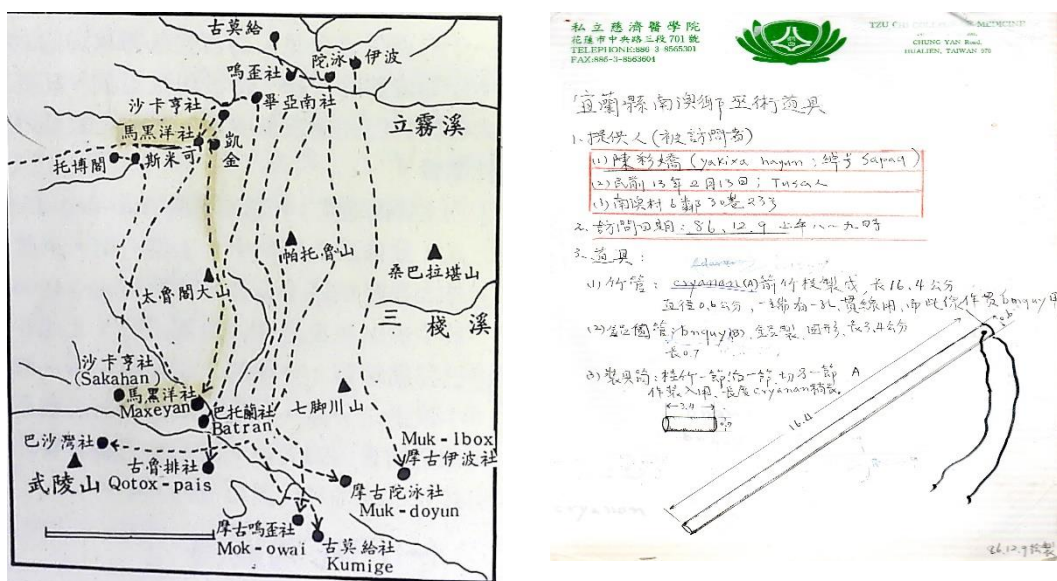 古莫給
嗚歪社
陀泳
伊波
沙卡亨社
畢亞南社
立霧溪
馬黑洋社
凱金
托博閣
斯米可
帕托魯山
桑巴拉堪山
太魯閣大山
三棧溪
沙卡亨社
(Sakahan)
馬黑洋社
Maxeyan
巴托蘭社
Batran
七脚川山
巴沙灣社
Muk-lbox
摩古伊波社
武陵山
古魯排社
Qotox-pais
摩古陀泳社
Muk-doyun
摩古嗚歪社
Mok-owai
古莫給社
Kumige
私立慈濟醫學院
花蓮市中央路三段701號
TELEPHONE:886 3-8565301
FAX:886-3-8563604
TZU CHI COLLEGE MEDICINE
CHUNG YAN Road,
HUALIEN, TAIWAN 970
宜蘭縣南澳鄉巫術道具
1.提供人(被訪問者)
(1)陳彩嬌(yakixa hayun;綽号Sapaq)
(2)民前13年2月13日;Tusa人
(3)南澳村6鄰30巷23号
2.訪問日期:86.12.9上午八~九時
3.道具:
(1)竹管:cryanan(A)箭竹枝製成,長16.4公分
直徑0.6公分,一端有一孔,貫線用,
(2)鉛圓管:bnquy,鉛製,圓形,長3.4公分
長0.7
(3)裝具筒:桂竹一節
作裝入用,長度cryanan稍長。
A
3.4
16.4
0.6
86.12.9繪製